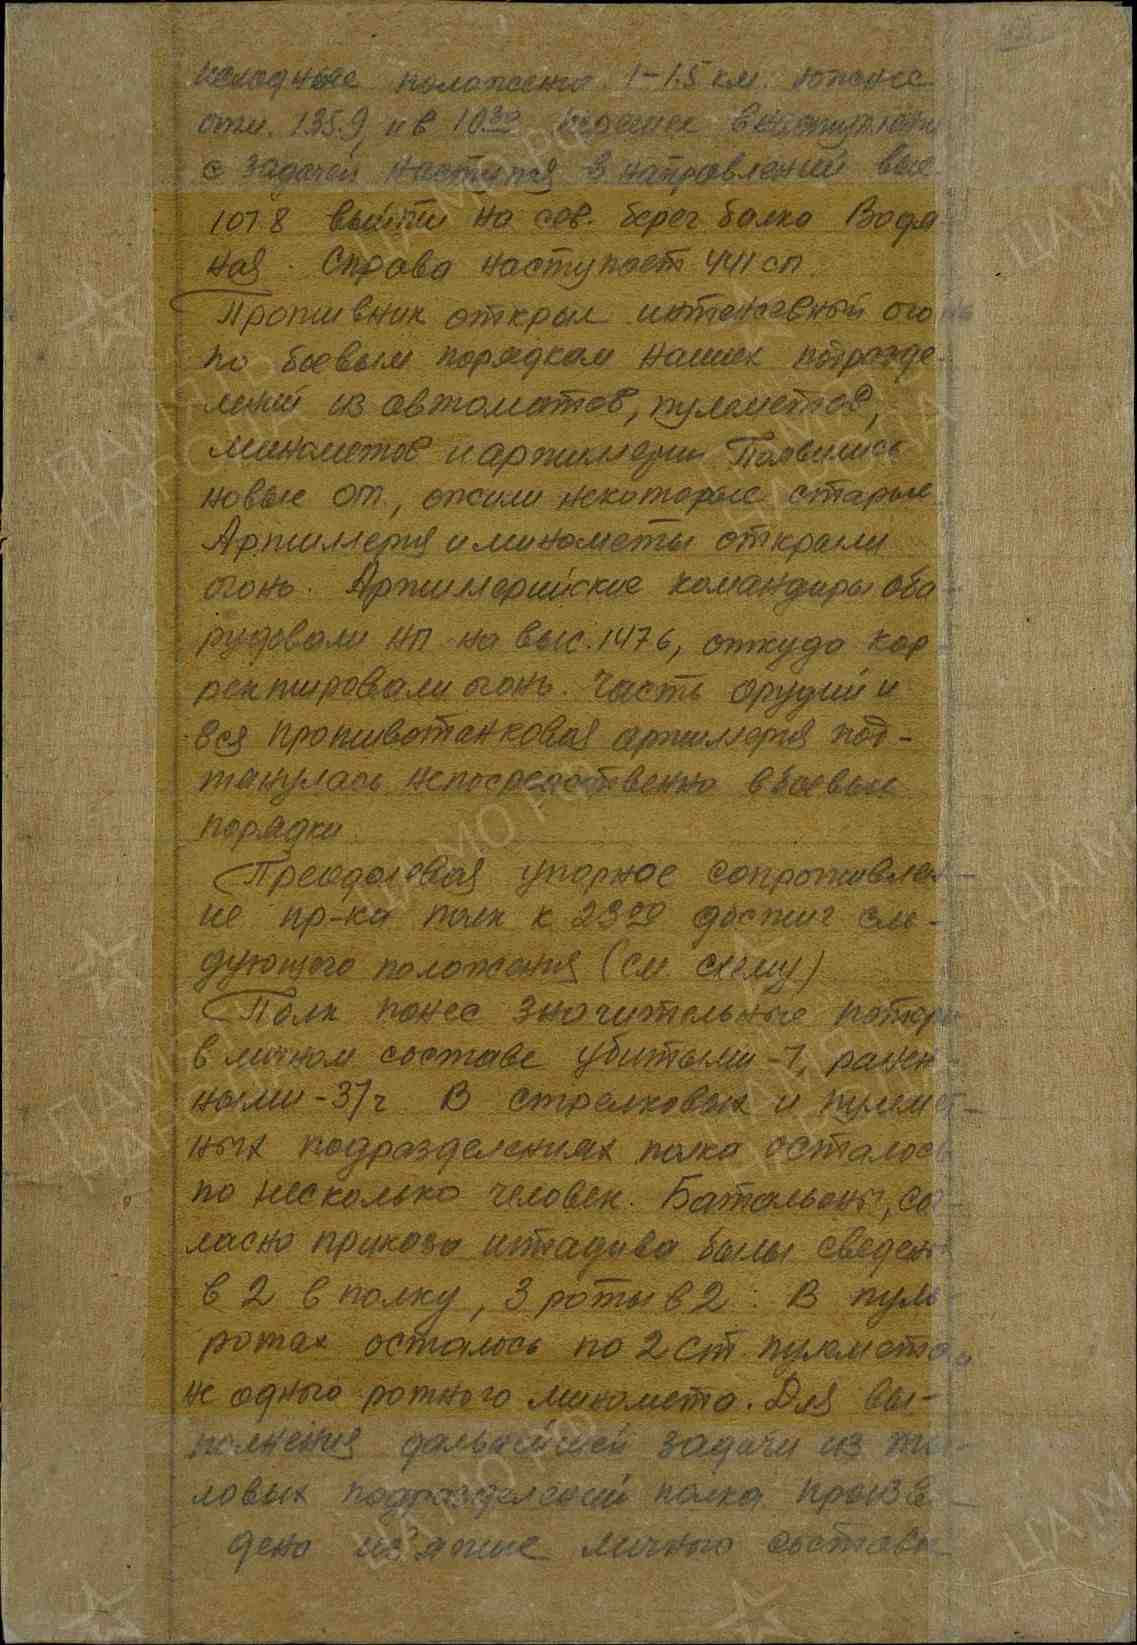 исходные положения 1-1.5 км. южнее
отм. 135.9, и в 10.30 перешел в наступление
с задачей наступая в направлении выс.
107.8 выйти на сев. берег балка Водя-
ная. Справа наступает 441 сп.
Противник открыл интенсевный огонь
по боевым порядкам наших подразде-
лений из автоматов, пулеметов,
минометов и артиллерии Появились
новые от., ожили некоторые старые
Артиллерия и минометы открыли
огонь. Артиллерийские командиры обо-
рудовали нп на выс. 147.6, откуда кор-
ректировали огонь. Часть орудий и
вся противотанковая артиллерия под-
тянулась непосредственно в боевые
порядки.
Преодолевая упорное сопротивлен-
ие пр-ка полк к 23.00 достиг сле-
дующего положения (см схему)
Полк понес значительные потери
в личном составе убитыми -7, ранен-
ными -37ч В стрелковых и пулемет-
ных подразделениях полка осталось
по несколько человек. Батальоны, со-
гласно приказа штадива были сведены
в 2 в полку, 3 роты в 2. В пуль
ротах осталось по 2 ст. пулемета
не одного ротного миномета. Для вы-
полнения дальнейшей задачи из ты-
ловых подразделений полка произве-
дено из'ятие личного состава